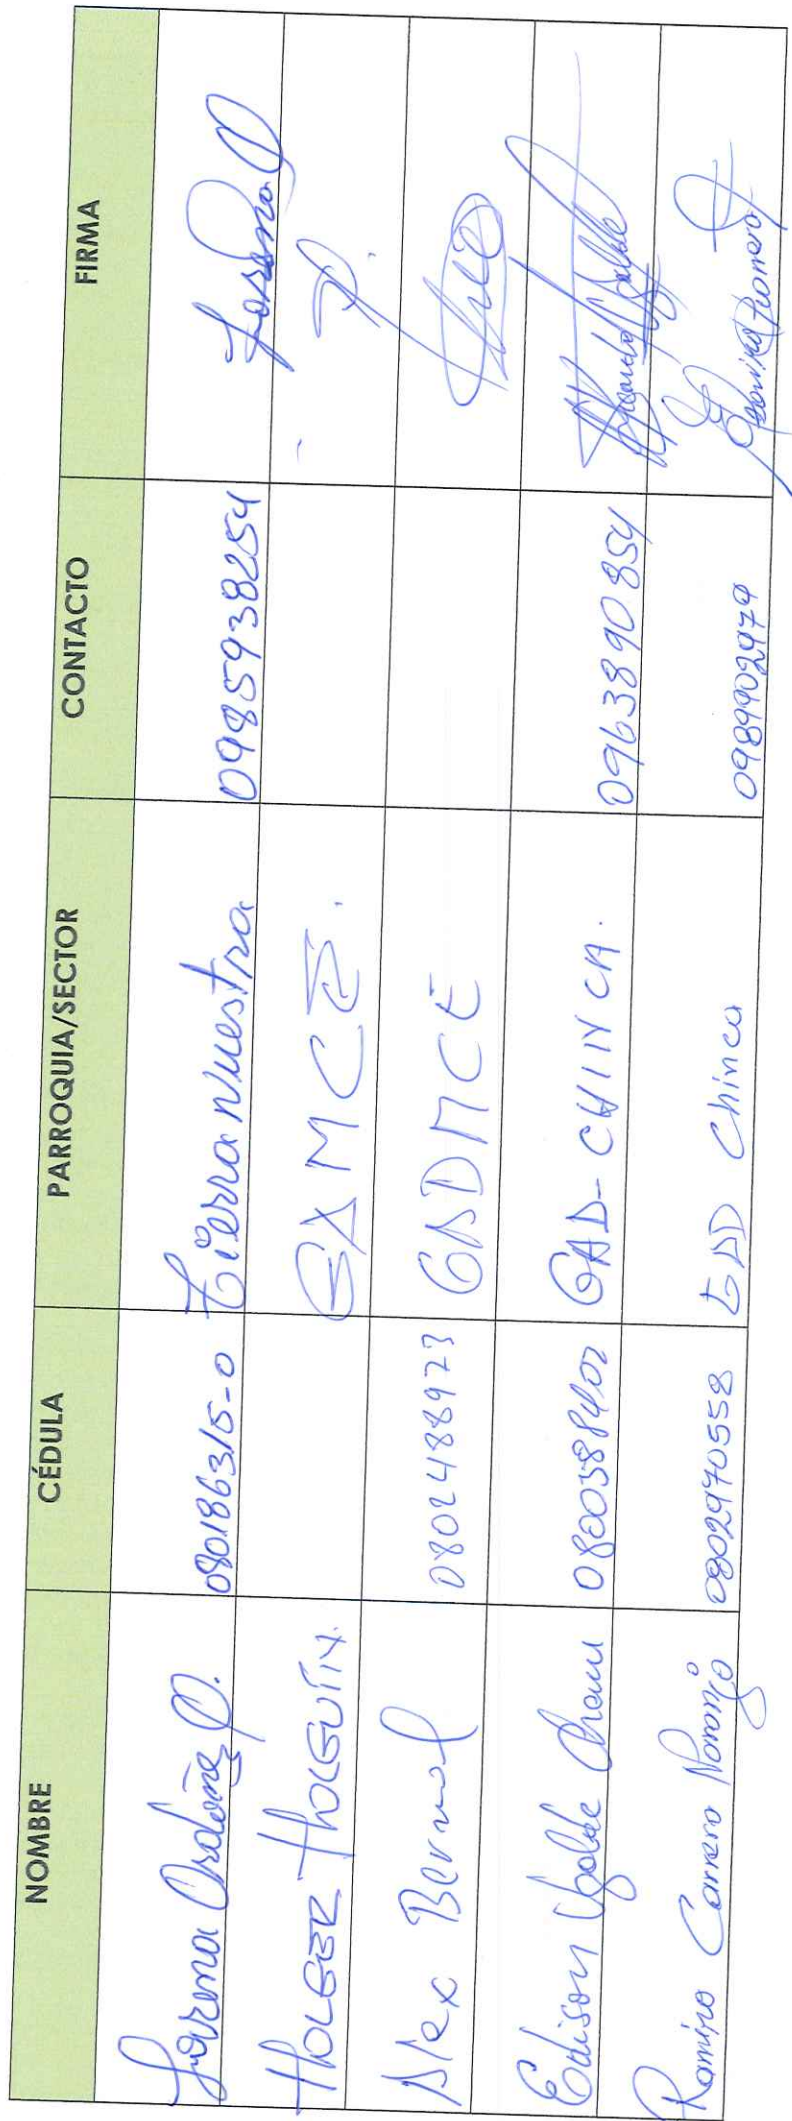 NOMBRE CÉDULA PARROQUIA/SECTOR CONTACTO FIRMA
Lorena Ordoñez O. 080186315-0 Tierra Nuestra 0985938254 Lorena O
HOLGER HOLGUÍN. GAMCE.
Alex Bernal 0802488923 GADMCE
Edison Ugalde 0800588402 GAD-CHINCA. 0963890854
Ramiro Carrera Naranjo 0802970558 GAD Chinca 0989902979